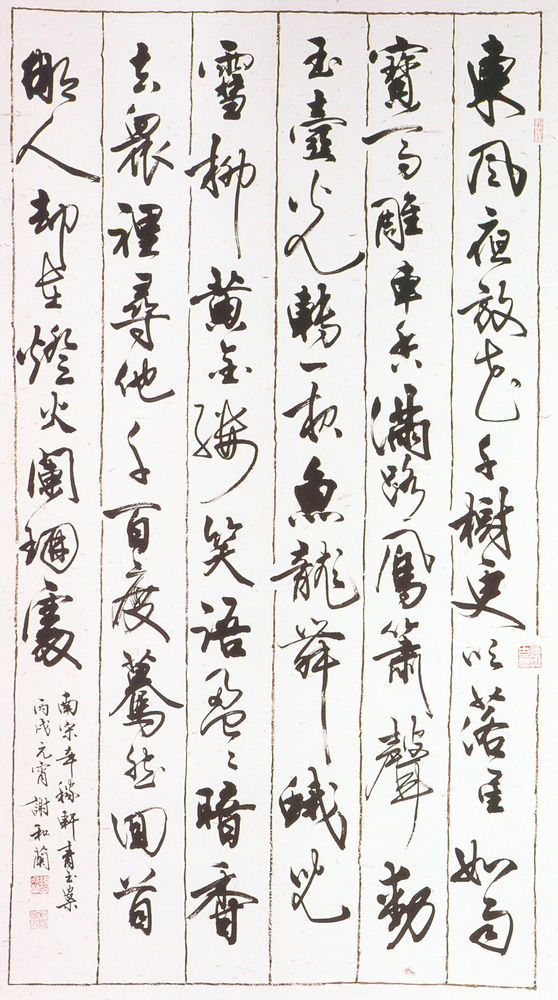 東風夜放花千樹更吹落星如雨
寶馬雕車香滿路鳳簫聲動
玉壺光轉一夜魚龍舞蛾兒
雪柳黃金縷笑語盈〻暗香
去衆裡尋他千百度驀然回首
那人却在燈火闌珊處
南宋辛稼軒青玉案
丙戌元宵謝和蘭